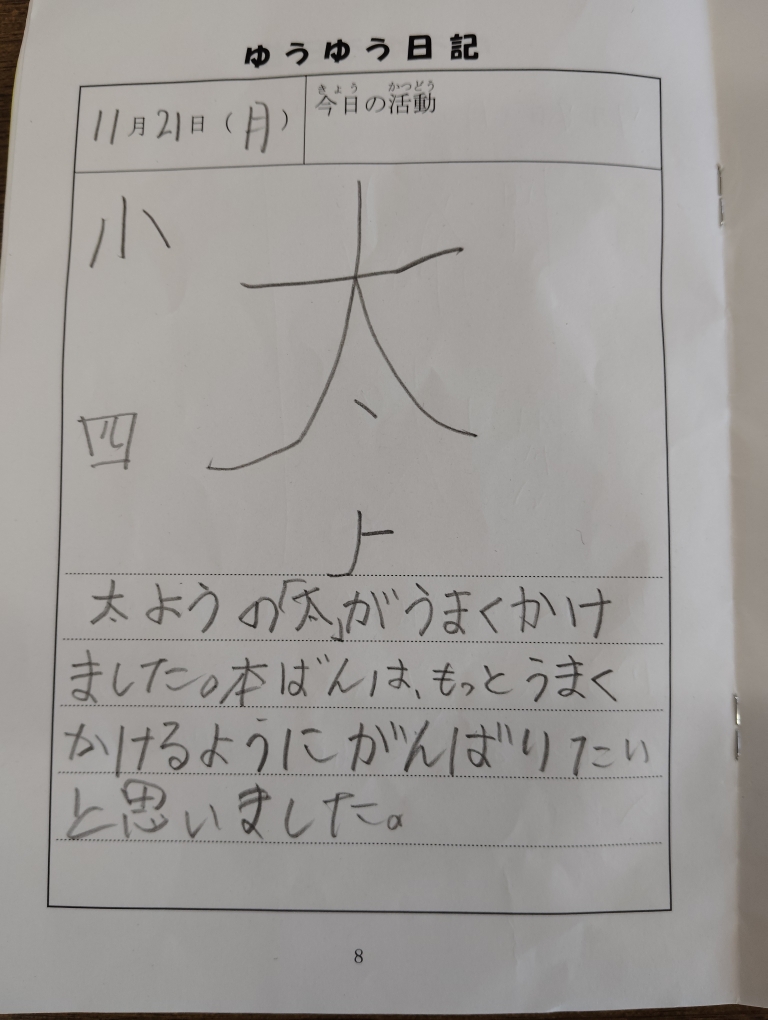 ゆうゆう日記
11月21日(月)
きょう かつどう
今日の活動
小
四
太
よ
太ようの「太」がうまくかけ
ました。本ばんは、もっとうまく
かけるようにがんばりたい
と思いました。
8